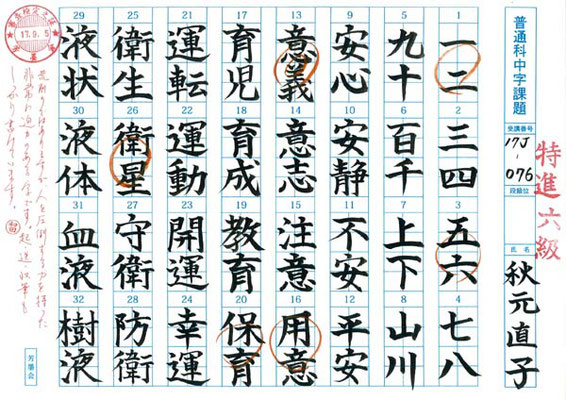 普通科中字課題
受講番号
17J-076
段級位
特進六級
氏名
秋元直子
1
一二
2
三四
3
五六
4
七八
5
九十
6
百千
7
上下
8
山川
9
安心
10
安静
11
不安
12
平安
13
意義
14
意志
15
注意
16
用意
17
育児
18
育成
19
教育
20
保育
21
運転
22
運動
23
開運
24
幸運
25
衛生
26
衛星
27
守衛
28
防衛
29
液状
30
液体
31
血液
32
樹液
17.9.5
芳墨会